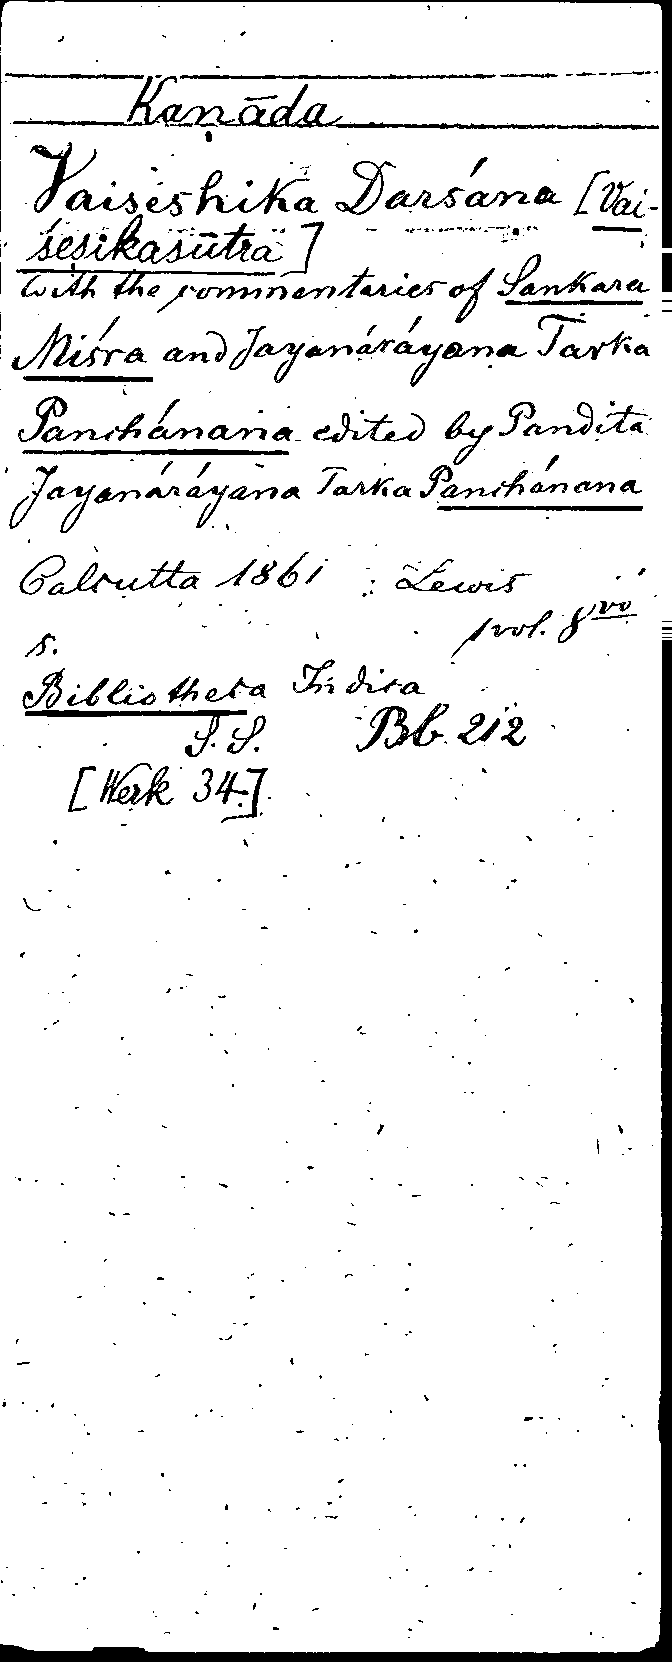 Kaṇāda
Vaiséshika Darsána [Vai-
śeṣikasūtra]
with the commentaries of Sankara
Miśra and Jayanáráyana Tarka
Panchánana edited by Pandita
Jayanáráyana Tarka Panchánana
Calcutta 1861 : Lewis
1 vol. 8vo
s.
Bibliotheca Indica
S. S. Bb 212
[Werk 34.]